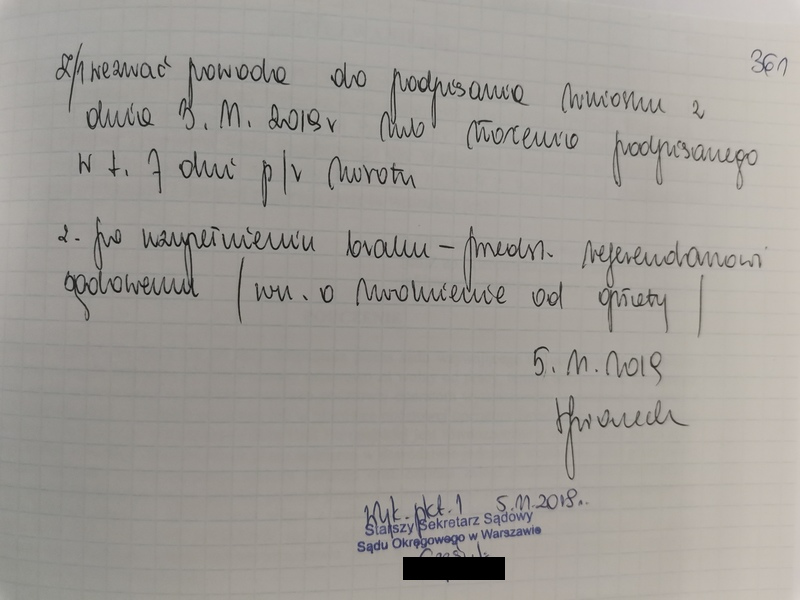 361
Z/1 wezwać powoda do podpisania wniosku z
dnia 3.11.2019 r lub złożenia podpisanego
w t. 7 dni p/r zwrotu
2. po uzupełnieniu braku – przedst. referendarzowi
sądowemu /wn. o zwolnienie od opłaty/
5.11.2019
Wyk. pkt. 1 5.11.2019r.
Starszy Sekretarz Sądowy
Sądu Okręgowego w Warszawie